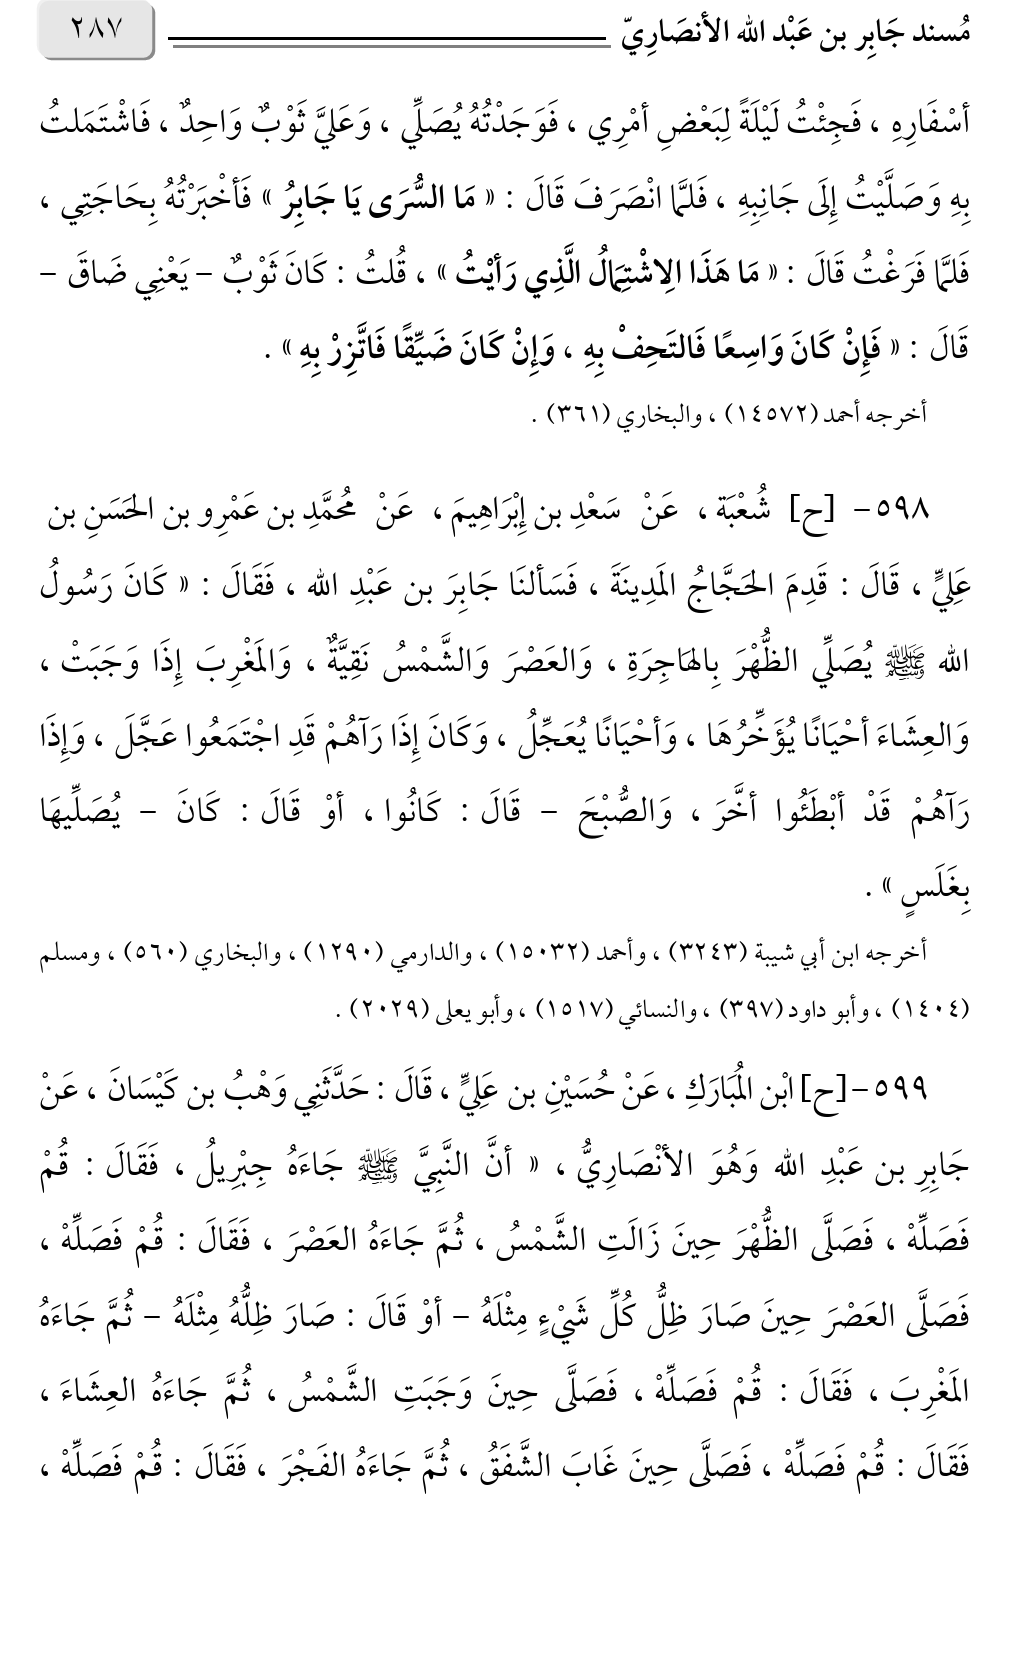 مُسند جَابِر بن عَبْد الله الأنصَارِيّ ٢٨٧
أسْفَارِهِ ، فَجِئْتُ لَيْلَةً لِبَعْضِ أمْرِي ، فَوَجَدْتُهُ يُصَلِّي ، وَعَلَيَّ ثَوْبٌ وَاحِدٌ ، فَاشْتَمَلتُ
بِهِ وَصَلَّيْتُ إِلَى جَانِبِهِ ، فَلمَّا انْصَرَفَ قَالَ : « مَا السُّرَى يَا جَابِرُ » فَأخْبَرْتُهُ بِحَاجَتِي ،
فَلمَّا فَرَغْتُ قَالَ : « مَا هَذَا الِاشْتِمَالُ الَّذِي رَأيْتُ » ، قُلتُ : كَانَ ثَوْبٌ – يَعْنِي ضَاقَ –
قَالَ : « فَإِنْ كَانَ وَاسِعًا فَالتَحِفْ بِهِ ، وَإِنْ كَانَ ضَيِّقًا فَاتَّزِرْ بِهِ » .
أخرجه أحمد (١٤٥٧٢) ، والبخاري (٣٦١) .
٥٩٨- [ح] شُعْبَة ، عَنْ سَعْدِ بن إِبْرَاهِيمَ ، عَنْ مُحمَّدِ بن عَمْرِو بن الحَسَنِ بن
عَلِيٍّ ، قَالَ : قَدِمَ الحَجَّاجُ المَدِينَةَ ، فَسَألنَا جَابِرَ بن عَبْدِ الله ، فَقَالَ : « كَانَ رَسُولُ
الله ﷺ يُصَلِّي الظُّهْرَ بِالهَاجِرَةِ ، وَالعَصْرَ وَالشَّمْسُ نَقِيَّةٌ ، وَالمَغْرِبَ إِذَا وَجَبَتْ ،
وَالعِشَاءَ أحْيَانًا يُؤَخِّرُهَا ، وَأحْيَانًا يُعَجِّلُ ، وَكَانَ إِذَا رَآهُمْ قَدِ اجْتَمَعُوا عَجَّلَ ، وَإِذَا
رَآهُمْ قَدْ أبْطَئُوا أخَّرَ ، وَالصُّبْحَ – قَالَ : كَانُوا ، أوْ قَالَ : كَانَ – يُصَلِّيهَا
بِغَلَسٍ » .
أخرجه ابن أبي شيبة (٣٢٤٣) ، وأحمد (١٥٠٣٢) ، والدارمي (١٢٩٠) ، والبخاري (٥٦٠) ، ومسلم
(١٤٠٤) ، وأبو داود (٣٩٧) ، والنسائي (١٥١٧) ، وأبو يعلى (٢٠٢٩) .
٥٩٩-[ح] ابْن المُبَارَكِ ، عَنْ حُسَيْنِ بن عَلِيٍّ ، قَالَ : حَدَّثَنِي وَهْبُ بن كَيْسَانَ ، عَنْ
جَابِرِ بن عَبْدِ الله وَهُوَ الأنْصَارِيُّ ، « أنَّ النَّبِيَّ ﷺ جَاءَهُ جِبْرِيلُ ، فَقَالَ : قُمْ
فَصَلِّهْ ، فَصَلَّى الظُّهْرَ حِينَ زَالَتِ الشَّمْسُ ، ثُمَّ جَاءَهُ العَصْرَ ، فَقَالَ : قُمْ فَصَلِّهْ ،
فَصَلَّى العَصْرَ حِينَ صَارَ ظِلُّ كُلِّ شَيْءٍ مِثْلَهُ – أوْ قَالَ : صَارَ ظِلُّهُ مِثْلَهُ – ثُمَّ جَاءَهُ
المَغْرِبَ ، فَقَالَ : قُمْ فَصَلِّهْ ، فَصَلَّى حِينَ وَجَبَتِ الشَّمْسُ ، ثُمَّ جَاءَهُ العِشَاءَ ،
فَقَالَ : قُمْ فَصَلِّهْ ، فَصَلَّى حِينَ غَابَ الشَّفَقُ ، ثُمَّ جَاءَهُ الفَجْرَ ، فَقَالَ : قُمْ فَصَلِّهْ ،